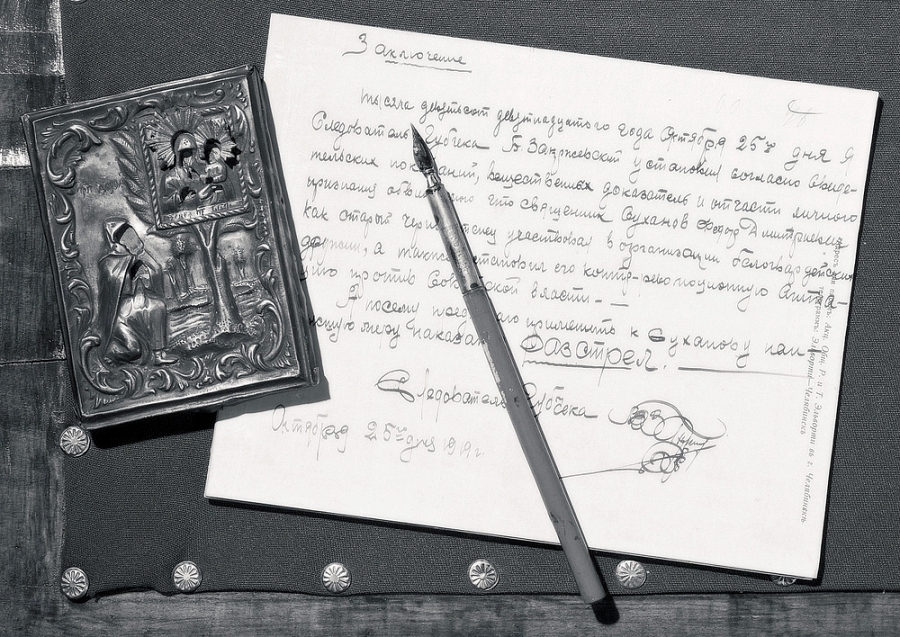 Заключение
тысяча девятьсот девятнадцатого года Октября 25го дня Я
Следователь Губчека Б. Закржевский установил согласно свиде-
тельских показаний, вещественных доказатель и отчасти личного
признания обвиняемого что священник Суханов Федор Дмитриевич
как старый черносотенец участвовал в организации белогвардейских
дружин, а также установил его контр-революционную агита-
цию против Советской власти —
А посему предлагаю применить к Суханову
высшую меру наказан Разстрел.
Следователь Губчека
Октября 25го дня 1919 г.
Акт. Общ. Р. и Т. Эльворти въ г. Челябинскъ
Эльворти—Челябинскъ